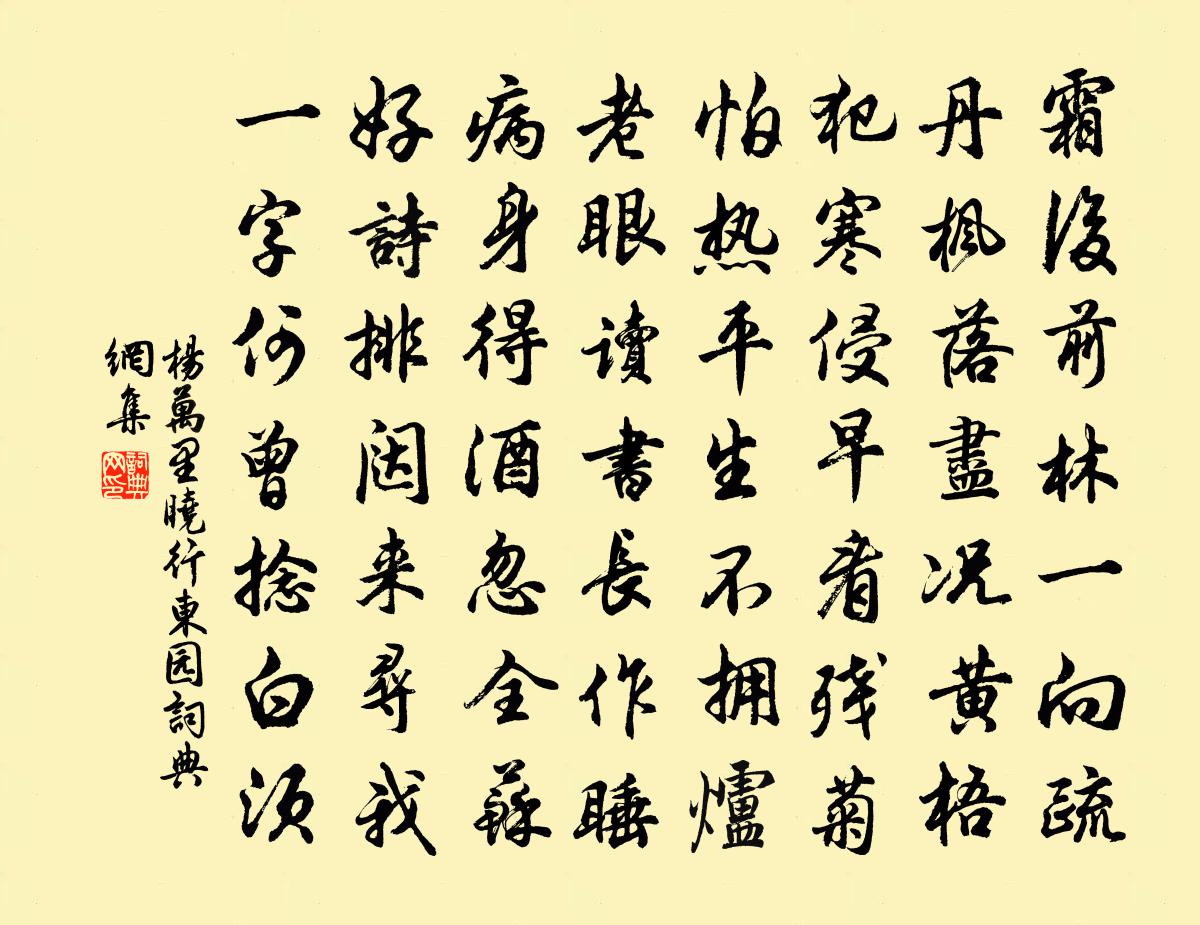 霜後前林一向疏
丹楓落盡况黄梧
犯寒侵早看残菊
怕热平生不拥爐
老眼讀書長作睡
病身得酒忽全蘇
好詩排闼来尋我
一字何曾捻白须
楊萬里曉行東园詞典
網集
詞典
网印